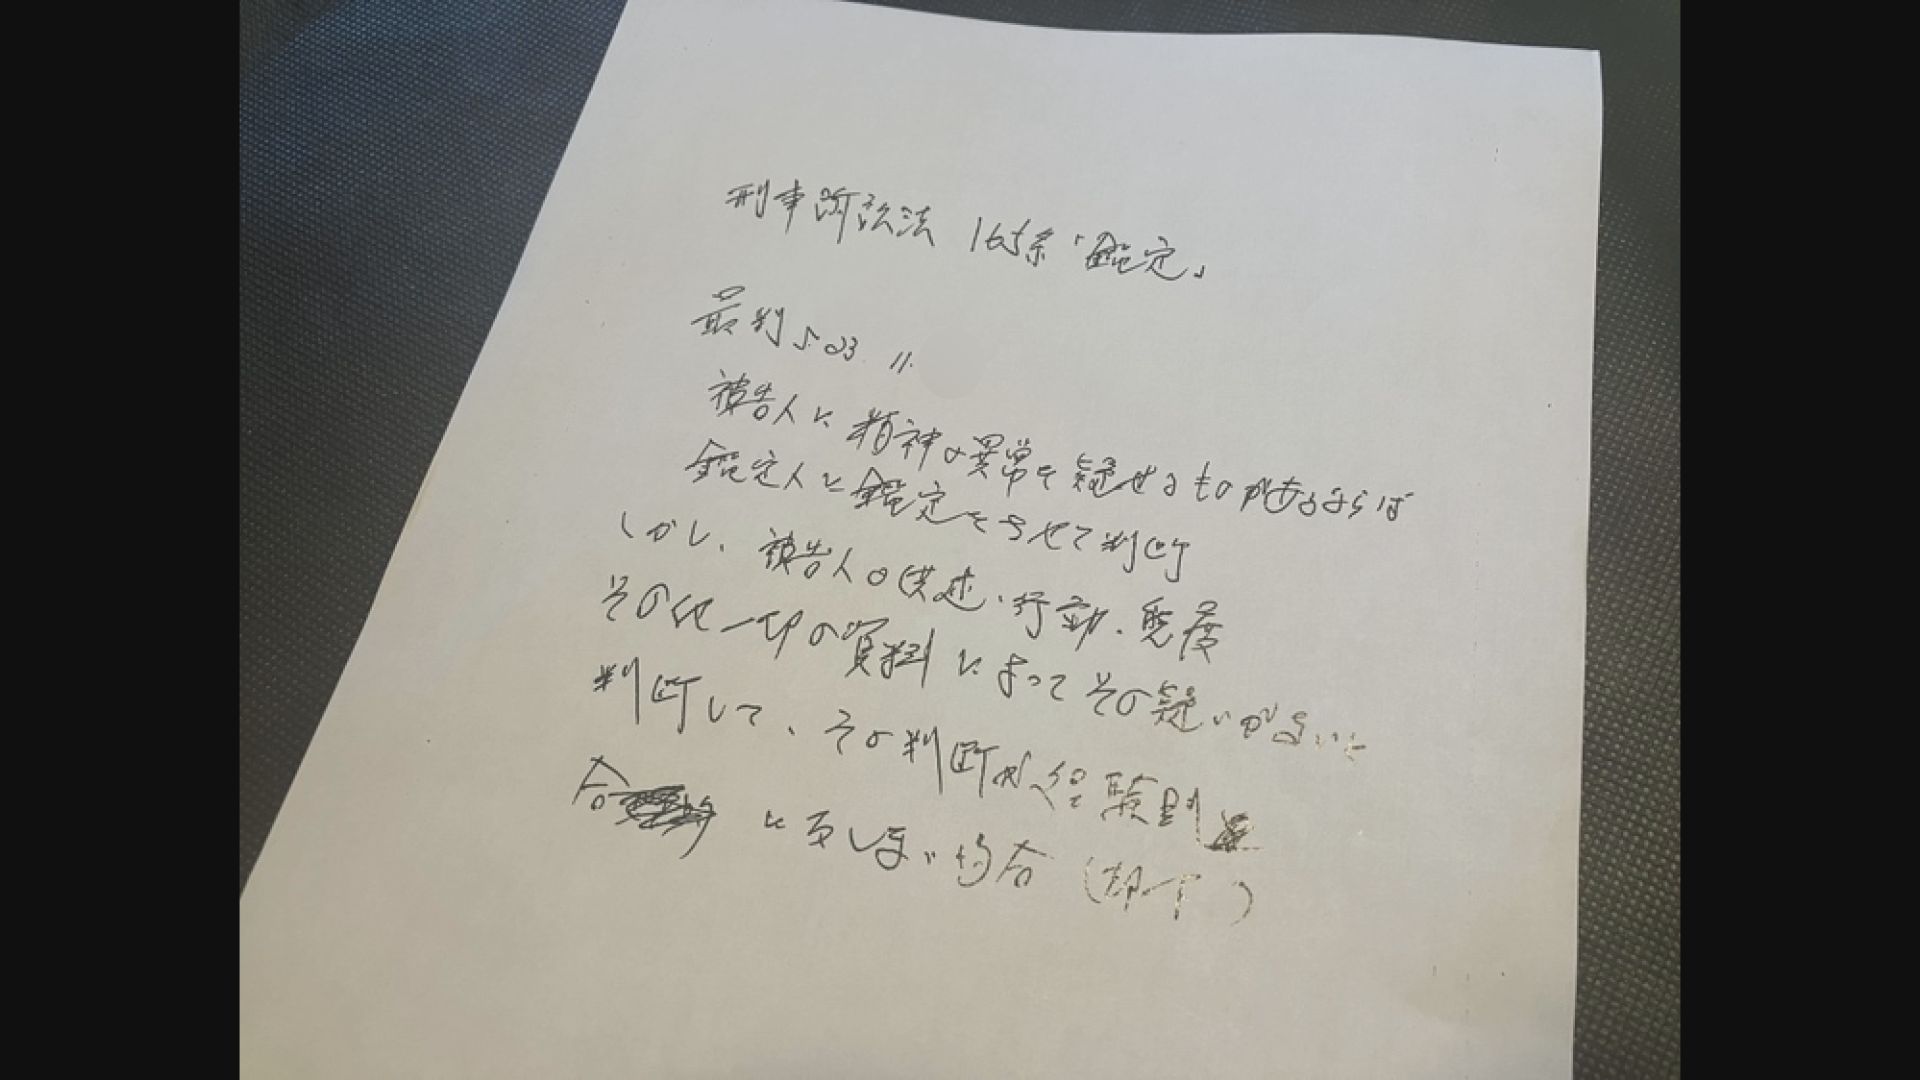 刑事訴訟法 165条「鑑定」
最判 S23. 11.
被告人に精神の異常を疑せるものがあるならば
鑑定人に鑑定をさせて判断
しかし、被告人の供述、行動、態度
その他一切の資料によってその疑いがないと
判断して、その判断が経験則
合 に反しない場合 (却下)